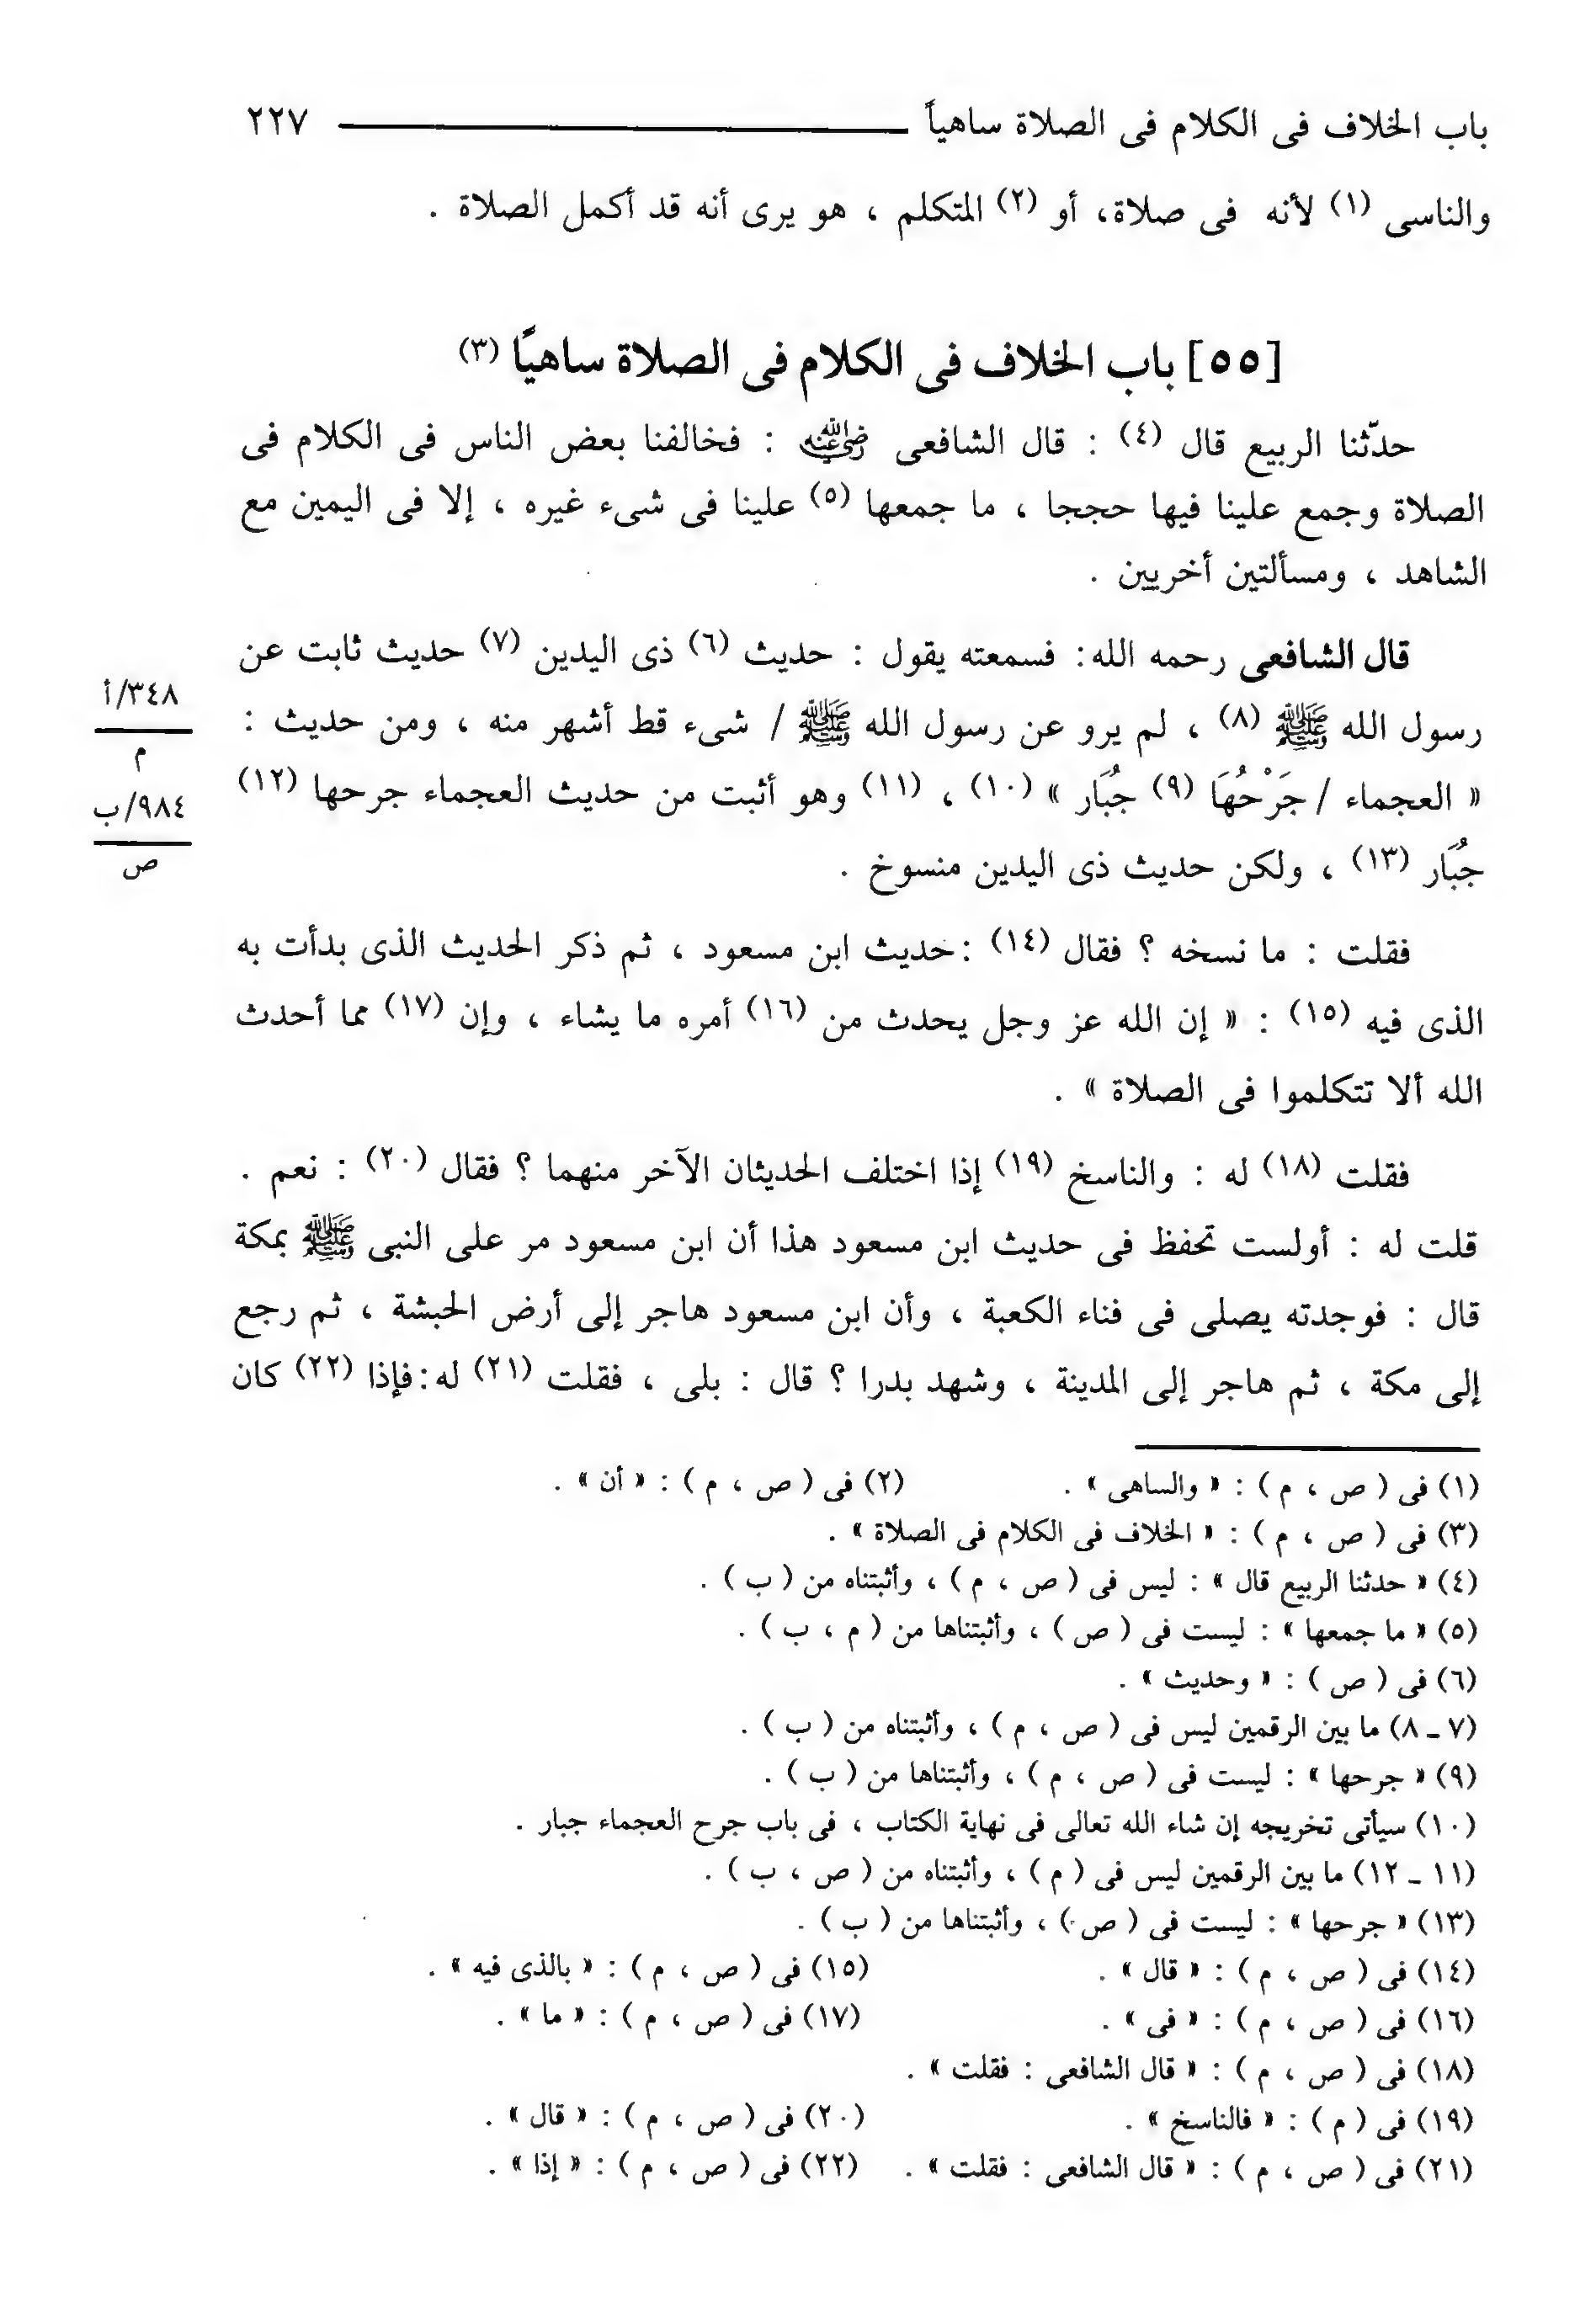 باب الخلاف فى الكلام فى الصلاة ساهياً ٢٢٧
والناسى (١) لأنه فى صلاة، أو (٢) المتكلم ، هو يرى أنه قد أكمل الصلاة .
[٥٥] باب الخلاف فى الكلام فى الصلاة ساهيًا (٣)
حدّثنا الربيع قال (٤) : قال الشافعى رضي الله عنه : فخالفنا بعض الناس فى الكلام فى
الصلاة وجمع علينا فيها حججا ، ما جمعها (٥) علينا فى شىء غيره ، إلا فى اليمين مع
الشاهد ، ومسألتين أخريين .
قال الشافعى رحمه الله: فسمعته يقول : حديث (٦) ذى اليدين (٧) حديث ثابت عن
رسول الله ﷺ (٨) ، لم يرو عن رسول الله ﷺ / شىء قط أشهر منه ، ومن حديث :
« العجماء / جَرْحُهَا (٩) جُبَار » (١٠) ، (١١) وهو أثبت من حديث العجماء جرحها (١٢)
جُبَار (١٣) ، ولكن حديث ذى اليدين منسوخ .
٣٤٨/أ
م
٩٨٤/ب
ص
فقلت : ما نسخه ؟ فقال (١٤) :حديث ابن مسعود ، ثم ذكر الحديث الذى بدأت به
الذى فيه (١٥) : « إن الله عز وجل يحدث من (١٦) أمره ما يشاء ، وإن (١٧) مما أحدث
الله ألا تتكلموا فى الصلاة » .
فقلت (١٨) له : والناسخ (١٩) إذا اختلف الحديثان الآخر منهما ؟ فقال (٢٠) : نعم .
قلت له : أولست تحفظ فى حديث ابن مسعود هذا أن ابن مسعود مر على النبى ﷺ بمكة
قال : فوجدته يصلى فى فناء الكعبة ، وأن ابن مسعود هاجر إلى أرض الحبشة ، ثم رجع
إلى مكة ، ثم هاجر إلى المدينة ، وشهد بدرا ؟ قال : بلى ، فقلت (٢١) له:فإذا (٢٢) كان
(١) فى ( ص ، م ) : « والساهى » . (٢) فى ( ص ، م ) : « أن » .
(٣) فى ( ص ، م ) : « الخلاف فى الكلام فى الصلاة » .
(٤) « حدثنا الربيع قال » : ليس فى ( ص ، م ) ، وأثبتناه من ( ب ) .
(٥) « ما جمعها » : ليست فى ( ص ) ، وأثبتناها من ( م ، ب ) .
(٦) فى ( ص ) : « وحديث » .
(٧ ـ ٨) ما بين الرقمين ليس فى ( ص ، م ) ، وأثبتناه من ( ب ) .
(٩) « جرحها » : ليست فى ( ص ، م ) ، وأثبتناها من ( ب ) .
(١٠) سيأتى تخريجه إن شاء الله تعالى فى نهاية الكتاب ، فى باب جرح العجماء جبار .
(١١ ـ ١٢) ما بين الرقمين ليس فى ( م ) ، وأثبتناه من ( ص ، ب ) .
(١٣) « جرحها » : ليست فى ( ص ) ، وأثبتناها من ( ب ) .
(١٤) فى ( ص ، م ) : « قال » . (١٥) فى ( ص ، م ) : « بالذى فيه » .
(١٦) فى ( ص ، م ) : « فى » . (١٧) فى ( ص ، م ) : « ما » .
(١٨) فى ( ص ، م ) : « قال الشافعى : فقلت » .
(١٩) فى ( م ) : « فالناسخ » . (٢٠) فى ( ص ، م ) : « قال » .
(٢١) فى ( ص ، م ) : « قال الشافعى : فقلت » . (٢٢) فى ( ص ، م ) : « إذا » .